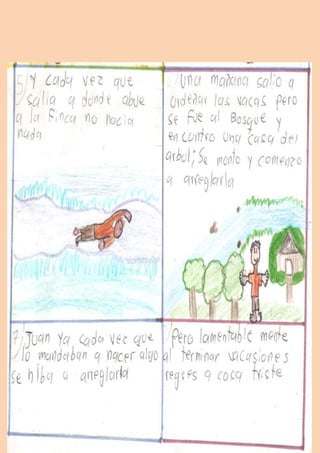 5) Y cada vez que
salia a donde abue
a la Finca no hacia
nada
6) Una mañana salio a
ordeñar las vacas pero
se fue al Bosque y
encontro una casa del
arbol; Se monto y comenzo
a arreglarla
7) Juan ya cada vez que
lo mandaban a hacer algo
se hiba a arreglarla
Pero lamentable mente
al terminar vacasiones
regres a casa triste